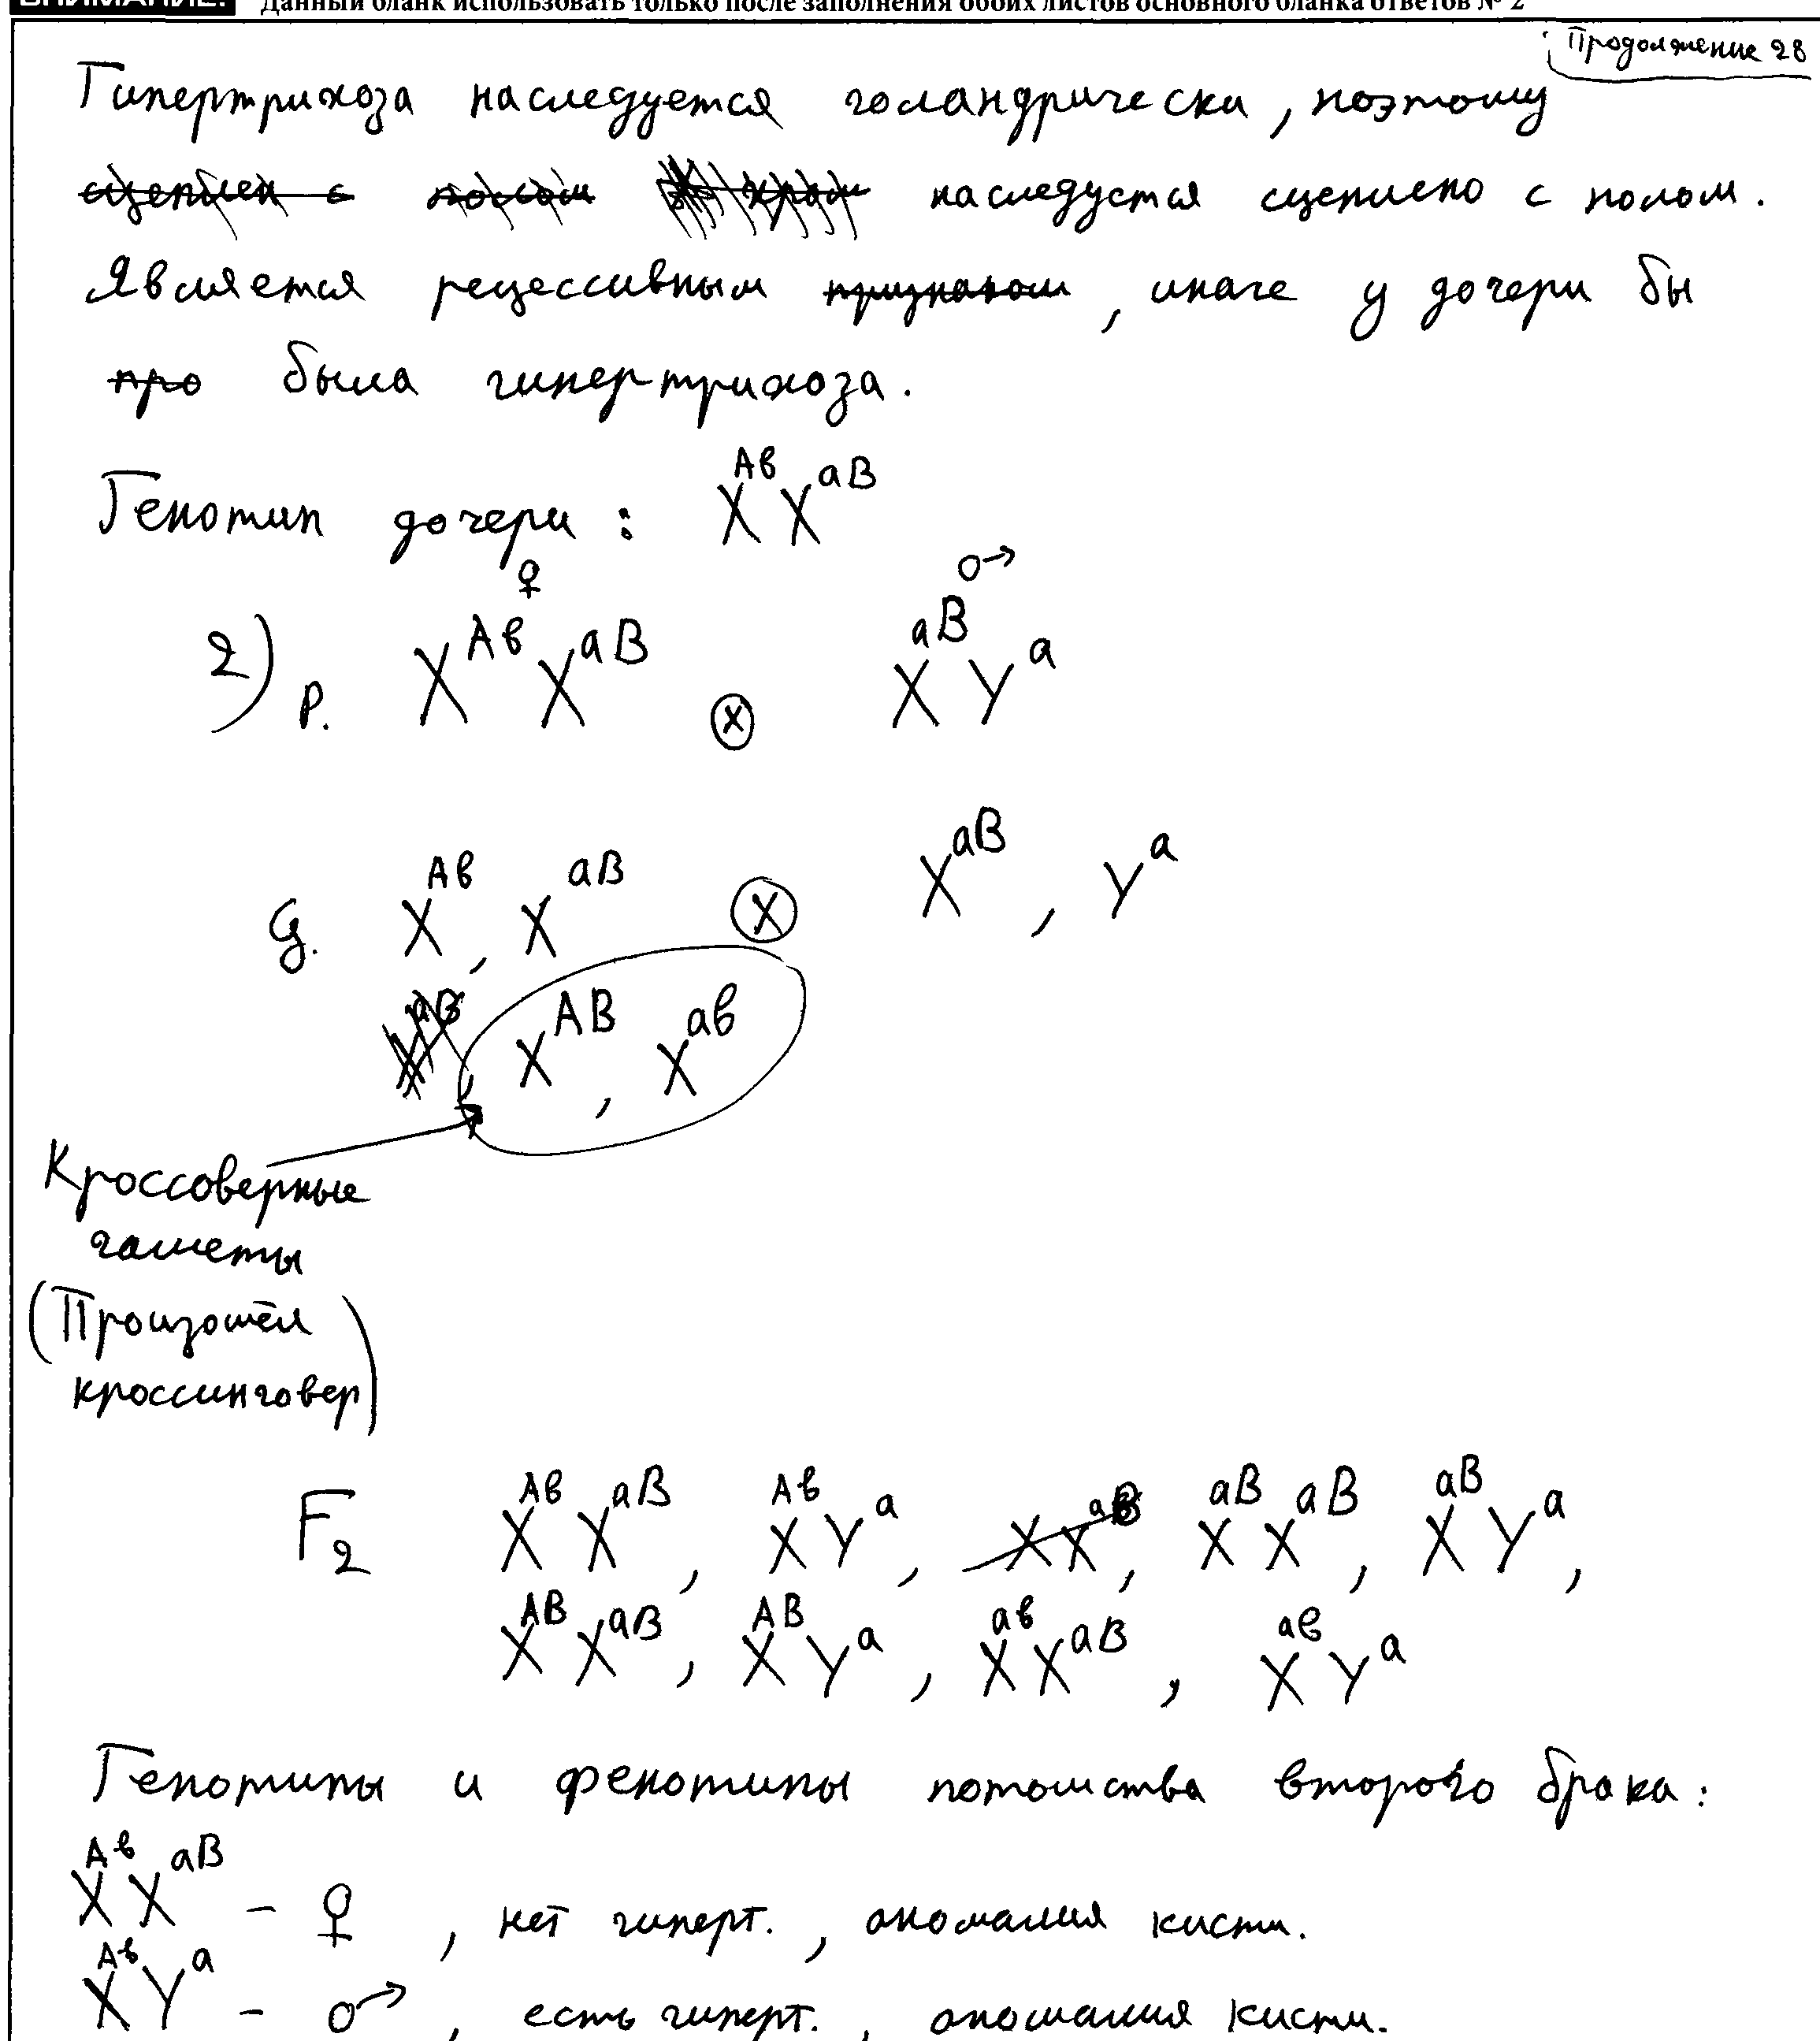 ВНИМАНИЕ! Данный бланк использовать только после заполнения обоих листов основного бланка ответов № 2
Продолжение 28
Гипертрихоза наследуется голандрически, поэтому
сцеплен с полом хром наследуется сцеплено с полом.
Является рецессивным признаком, иначе у дочери бы
про была гипертрихоза.
Генотип дочери: X^Aв X^aB
♀ ♂
2) P. X^Aв X^aB ⊗ X^aB Y^a
G. X^Aв, X^aB ⊗ X^aB, Y^a
X^aB, X^AB, X^aв
Кроссоверные
гаметы
(Произошёл
кроссинговер)
F2 X^Aв X^aB, X^Aв Y^a, X X^aB, X^aB X^aB, X^aB Y^a,
X^AB X^aB, X^AB Y^a, X^aв X^aB, X^aв Y^a
Генотипы и фенотипы потомства второго брака:
X^Aв X^aB - ♀, нет гиперт., аномалия кисти.
X^Aв Y^a - ♂, есть гиперт., аномалия кисти.